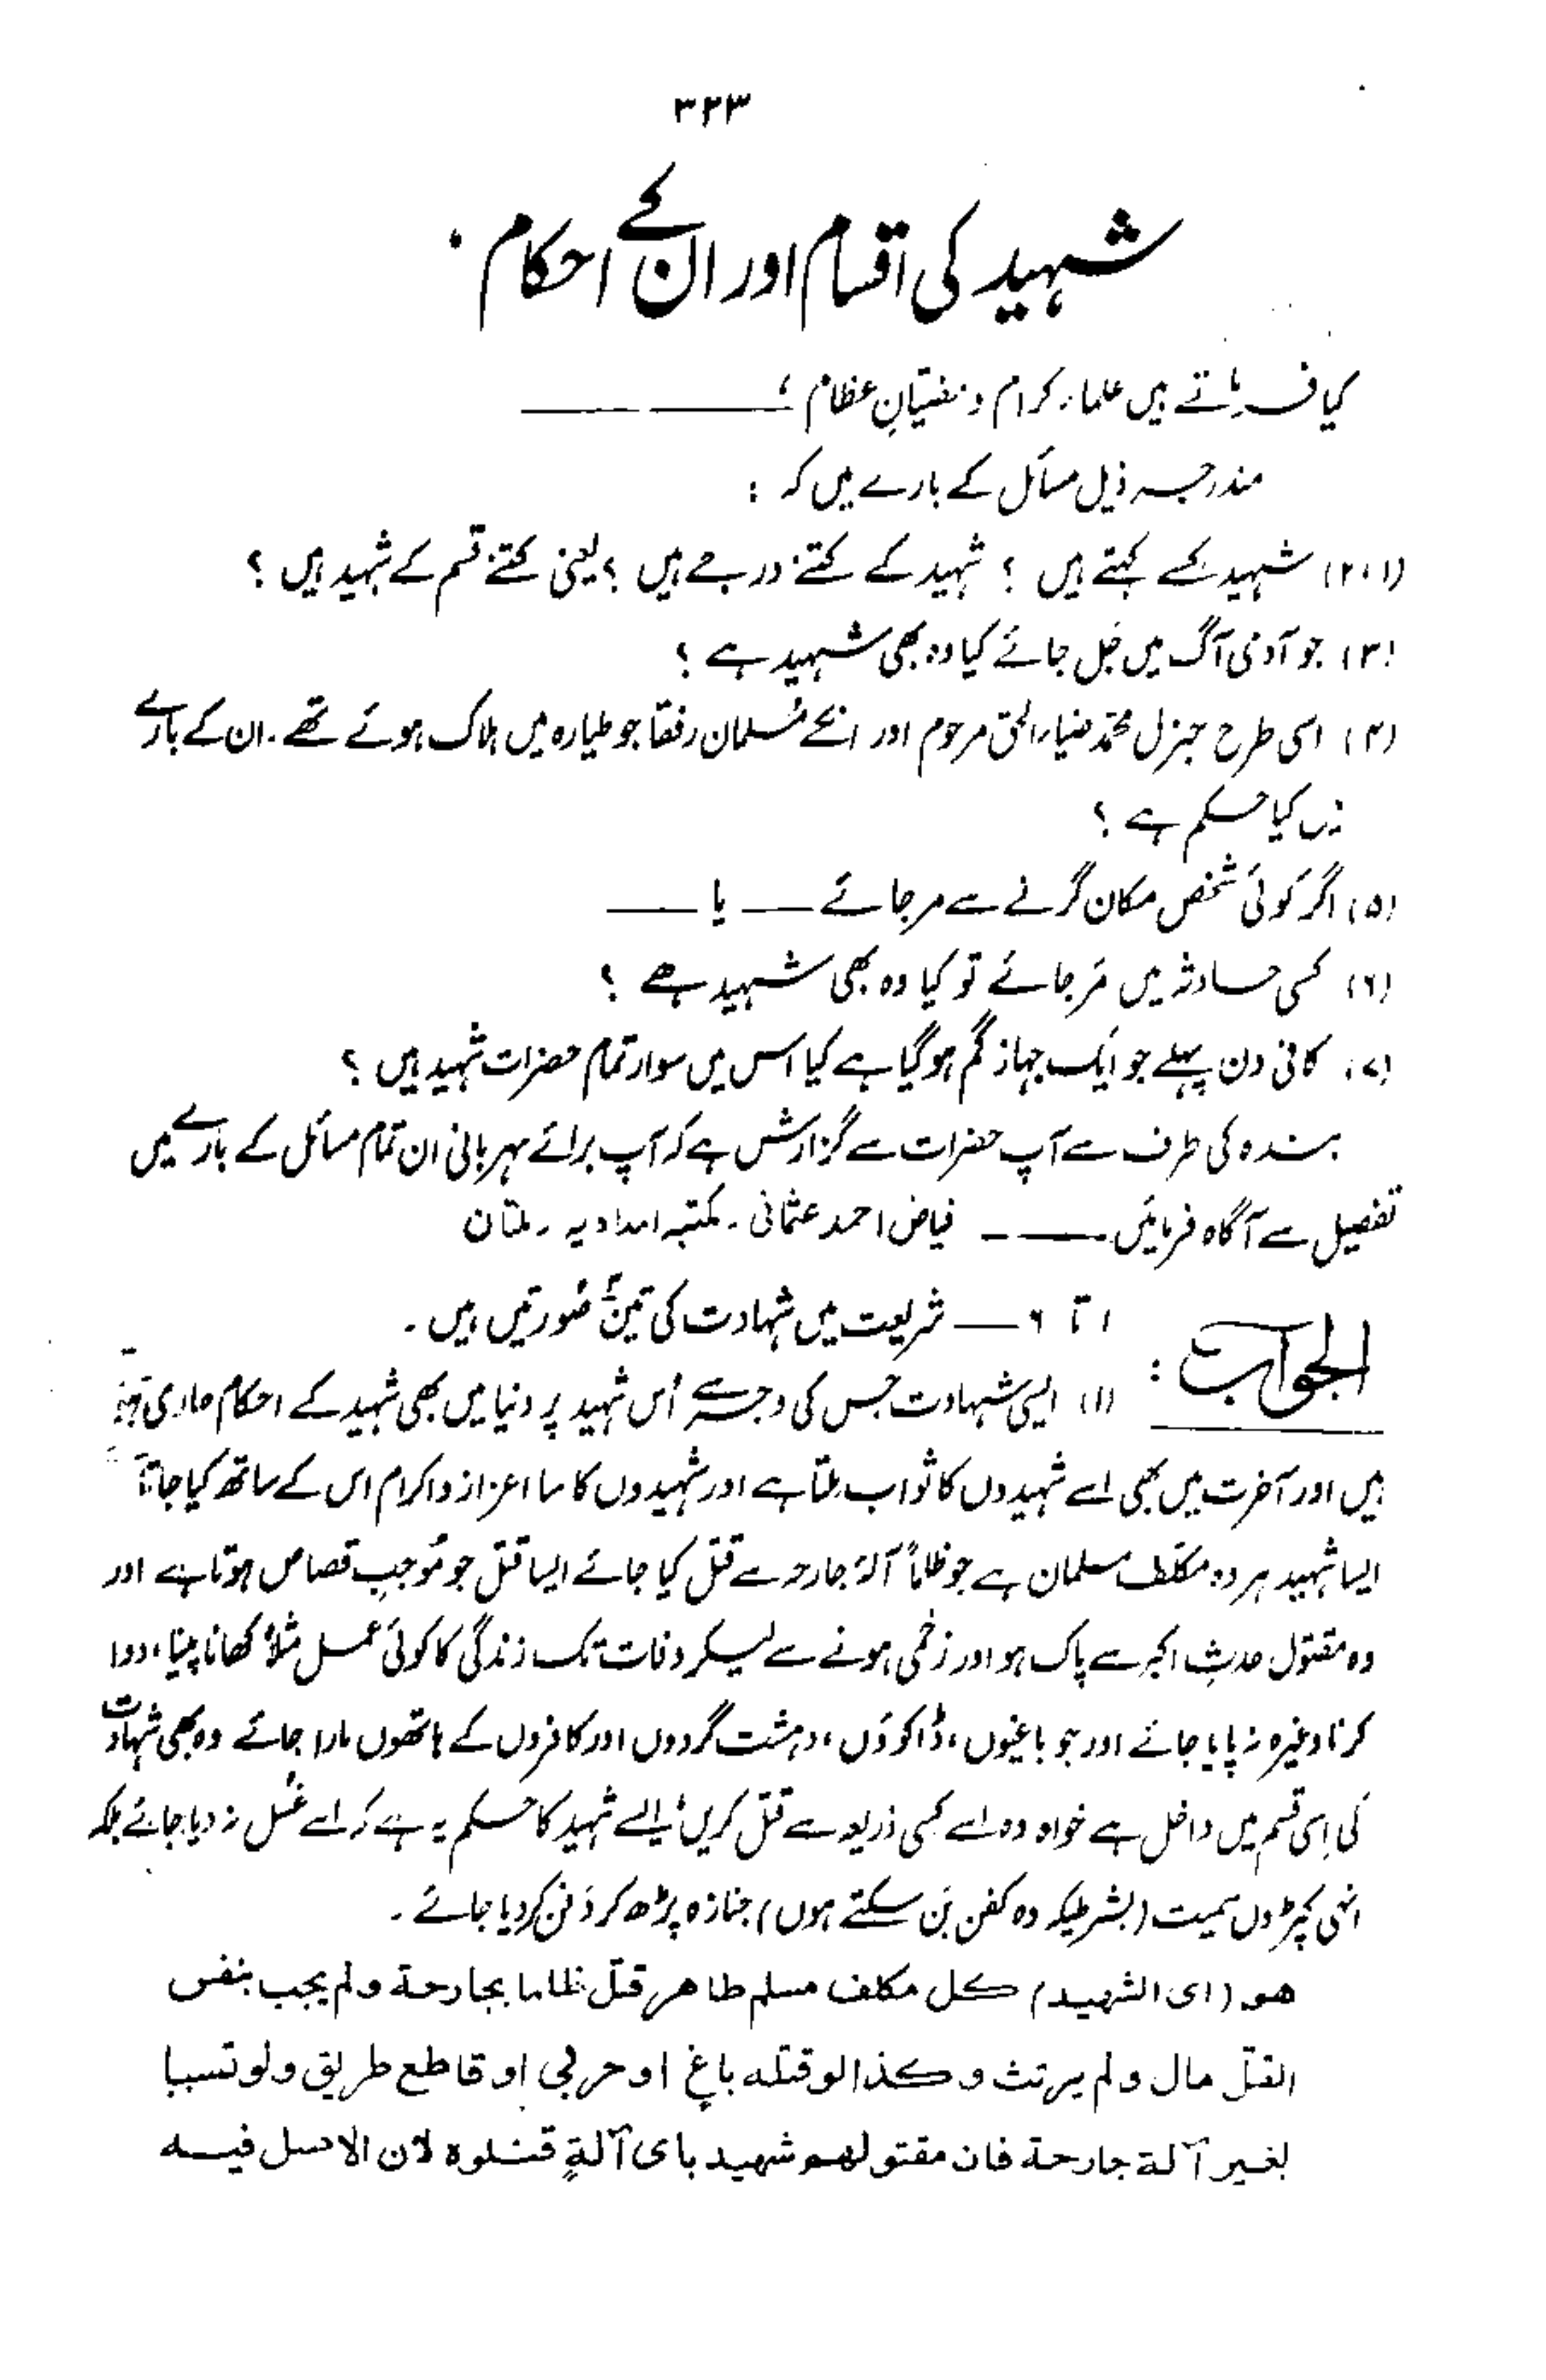 ۳۲۳
شہید کی اقسام اور ان کے احکام
کیا فرماتے ہیں علماء کرام و مفتیانِ عظام ؛
مندرجہ ذیل مسائل کے بارے میں کہ :
(۱، ۲) شہید کسے کہتے ہیں ؟ شہید کے کتنے درجے ہیں ؟ یعنی کتنے قسم کے شہید ہیں ؟
(۳) جو آدمی آگ میں جل جائے کیا وہ بھی شہید ہے ؟
(۴) اسی طرح جنرل محمد ضیاء الحق مرحوم اور انکے مسلمان رفقا جو طیارہ میں ہلاک ہوئے تھے۔ ان کے بارے
میں کیا حکم ہے ؟
(۵) اگر کوئی شخص مکان گرنے سے مر جائے — یا —
(۶) کسی حادثہ میں مَر جائے تو کیا وہ بھی شہید ہے ؟
(۷) کافی دن پہلے جو ایک جہاز گم ہو گیا ہے کیا اس میں سوار تمام حضرات شہید ہیں ؟
بندہ کی طرف سے آپ حضرات سے گزارش ہے کہ آپ برائے مہربانی ان تمام مسائل کے بارے میں
تفصیل سے آگاہ فرمائیں —— فیاض احمد عثمانی ۔ مکتبہ امدادیہ ۔ ملتان
الجواب : ۱ تا ۶ — شریعت میں شہادت کی تین صُورتیں ہیں ۔
(۱) ایسی شہادت جس کی وجہ سے اُس شہید پر دنیا میں بھی شہید کے احکام جاری ہوتے
ہیں اور آخرت میں بھی اسے شہیدوں کا ثواب ملتا ہے اور شہیدوں کا سا اعزاز و اکرام اس کے ساتھ کیا جاتا
ایسا شہید ہر وہ مکلّف مسلمان ہے جو ظلماً آلۂ جارحہ سے قتل کیا جائے ایسا قتل جو مُوجبِ قصاص ہوتا ہے اور
وہ مقتول حدثِ اکبر سے پاک ہو اور زخمی ہونے سے لیکر وفات تک زندگی کا کوئی عمل مثلاً کھانا پینا، دوا
کرنا وغیرہ نہ پایا جائے اور جو باغیوں، ڈاکوؤں، دہشت گردوں اور کافروں کے ہاتھوں مارا جائے وہ بھی شہادت
کی اِسی قسم میں داخل ہے خواہ وہ اسے کسی ذریعہ سے قتل کریں، ایسے شہید کا حکم یہ ہے کہ اسے غُسل نہ دیا جائے بلکہ
انہی کپڑوں سمیت (بشرطیکہ وہ کفن بَن سکتے ہوں) جنازہ پڑھ کر دفن کر دیا جائے ۔
هو (ای الشهید) کل مکلف مسلم طاهر قتل ظلما بجارحة ولم یجب بنفس
القتل مال ولم یرتث وکذا لو قتله باغٍ او حربی او قاطع طریق ولو تسببا
بغیر آلة جارحة فان مقتولهم شهید بای آلةٍ قتلوه لان الاصل فیه